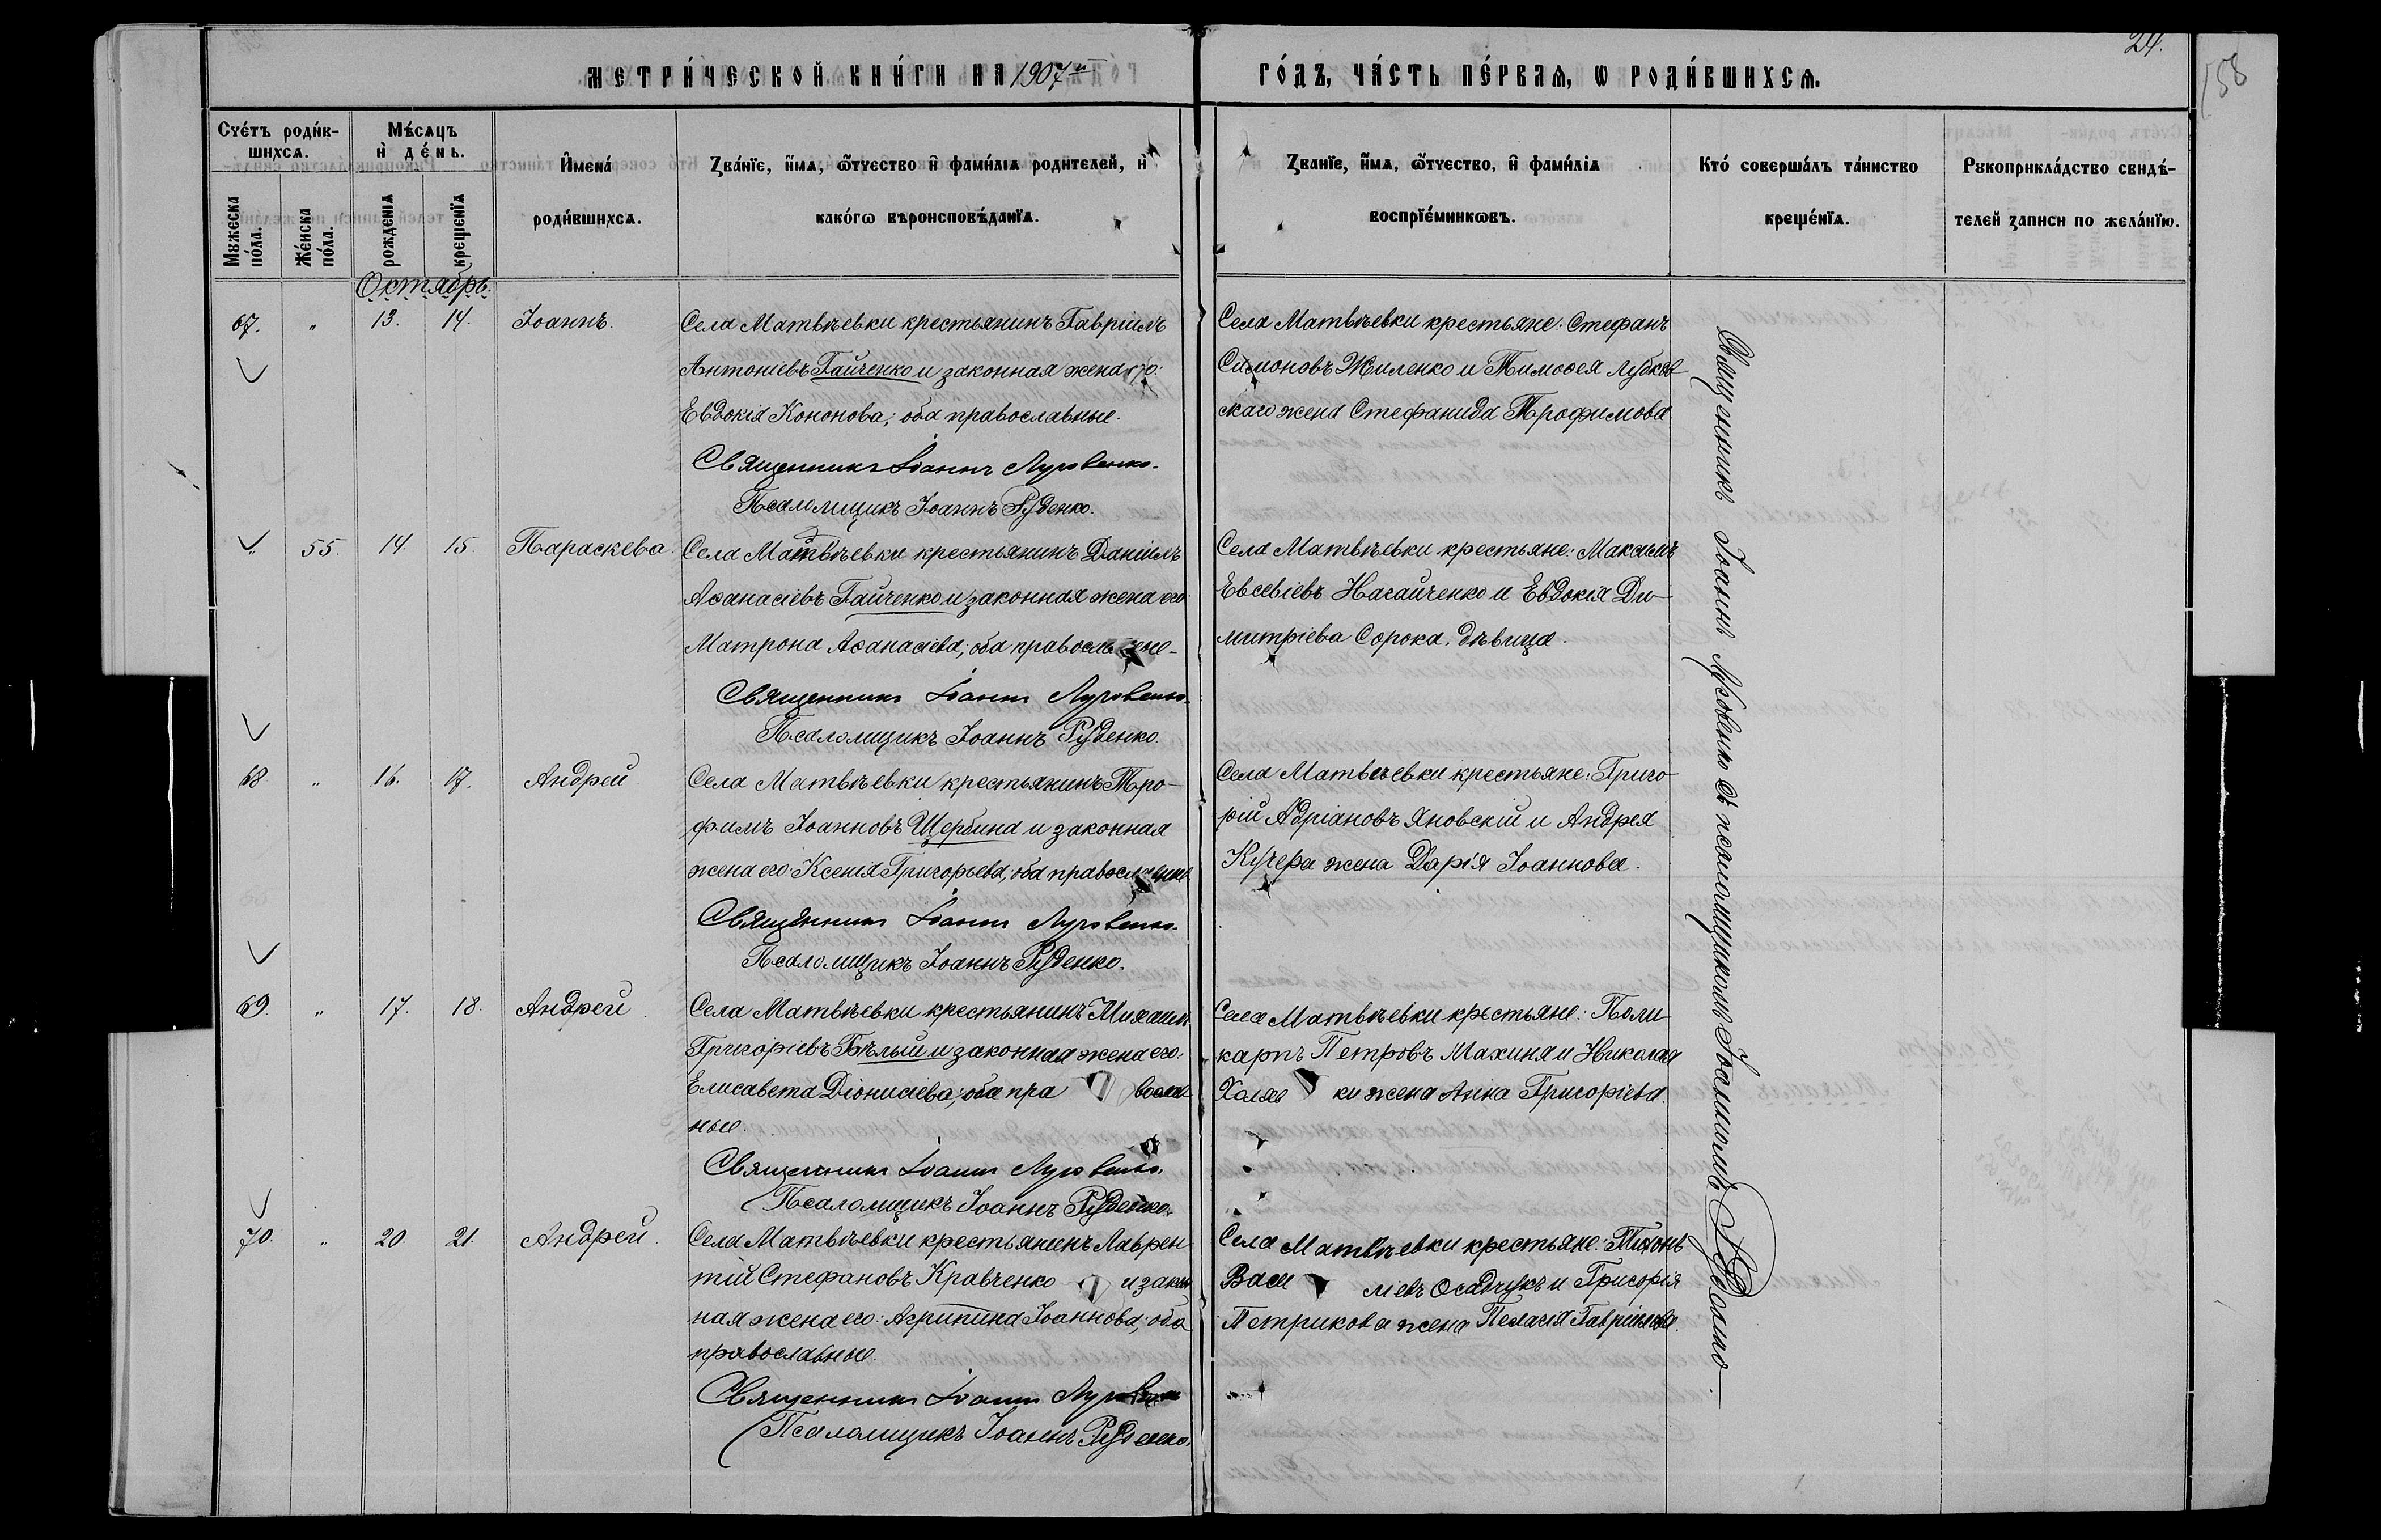 24.
158
МЕТРИ́ЧЕСКОЙ КНИ́ГИ НА 1907й ГО́ДЪ, ЧА́СТЬ ПЕ́РВАЯ, Ѡ РОДИ́ВШИХСЯ.
Сче́тъ роди́в-
шихсѧ.
Мꙋжеска по́ла.
Же́нска по́ла.
Мѣ́сѧцъ
и҆ де́нь.
рожденїѧ
крещенїѧ
И҆мена́
роди́вшихсѧ.
Зва́нїе, и҆́мѧ, ѻ҆́тчество и҆ фами́лїѧ родителей, и҆
како́гѡ вѣроисповѣ́данїѧ.
Зва́нїе, и҆́мѧ, ѻ҆́тчество, и҆ фами́лїѧ
воспрїе́мникѡвъ.
Кто́ соверша́лъ та́инство
креще́нїѧ.
Рꙋкоприкла́дство свидѣ́-
телей записи по жела́нїю.
Октябрь.
67. " 13. 14. Іоаннъ.
Села Матвѣевки крестьянинъ Гавріилъ
Антоніевъ Гайченко и законная жена его:
Евдокія Кононова; оба православные.
Священникъ Іоаннъ Луговенко.
Псаломщикъ Іоаннъ Руденко.
Села Матвѣевки крестьяне: Стефанъ
Симоновъ Жиленко и Тимоѳея Лубков
скаго жена Стефанида Трофимова
" 55. 14. 15. Параскева.
Села Матвѣевки крестьянинъ Даніилъ
Аѳанасіевъ Гайченко и законная жена его:
Матрона Аѳанасіева; оба православные
Священникъ Іоаннъ Луговенко.
Псаломщикъ Іоаннъ Руденко.
Села Матвѣевки крестьяне: Максимъ
Евсевіевъ Нагайченко и Евдокія Ди-
митріева Сорока, дѣвица.
68 " 16. 17. Андрей
Села Матвѣевки крестьянинъ Тро-
фимъ Іоанновъ Щербина и законная
жена его: Ксенія Григорьева; оба православные
Священникъ Іоаннъ Луговенко.
Псаломщикъ Іоаннъ Руденко.
Села Матвѣевки крестьяне: Григо-
рій Адріановъ Яновскій и Андрея
Кучера жена Дарія Іоаннова.
69. " 17. 18. Андрей.
Села Матвѣевки крестьянинъ Михаилъ
Григоріевъ Бѣлый и законная жена его:
Елисавета Діонисіева; оба пра вослав-
ные.
Священникъ Іоаннъ Луговенко.
Псаломщикъ Іоаннъ Руденко.
Села Матвѣевки крестьяне: Поли-
карпъ Петровъ Махиня и Николая
Халяв ки жена Анна Григоріева.
70. " 20. 21. Андрей.
Села Матвѣевки крестьянинъ Лаврен
тій Стефановъ Кравченко и закон
ная жена его: Агрипина Іоаннова; оба
православные.
Священникъ Іоаннъ Луговенко
Псаломщикъ Іоаннъ Руденко.
Села Матвѣевки крестьяне: Тихонъ
Васи ліевъ Осадчукъ и Григорія
Петрикова жена Пелагія Гавріилова.
Священникъ Іоаннъ Луговенко съ псаломщикомъ Іоанномъ Руденко.